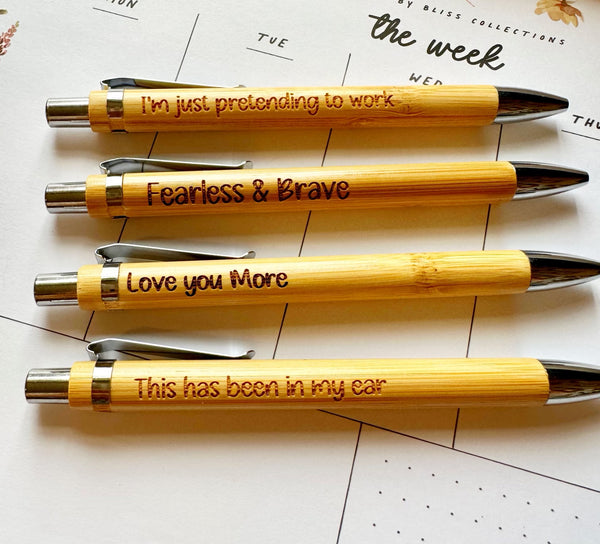 BY BLISS COLLECTIONS
the week
TUE
I'm just pretending to work
Fearless & Brave
Love you More
This has been in my ear